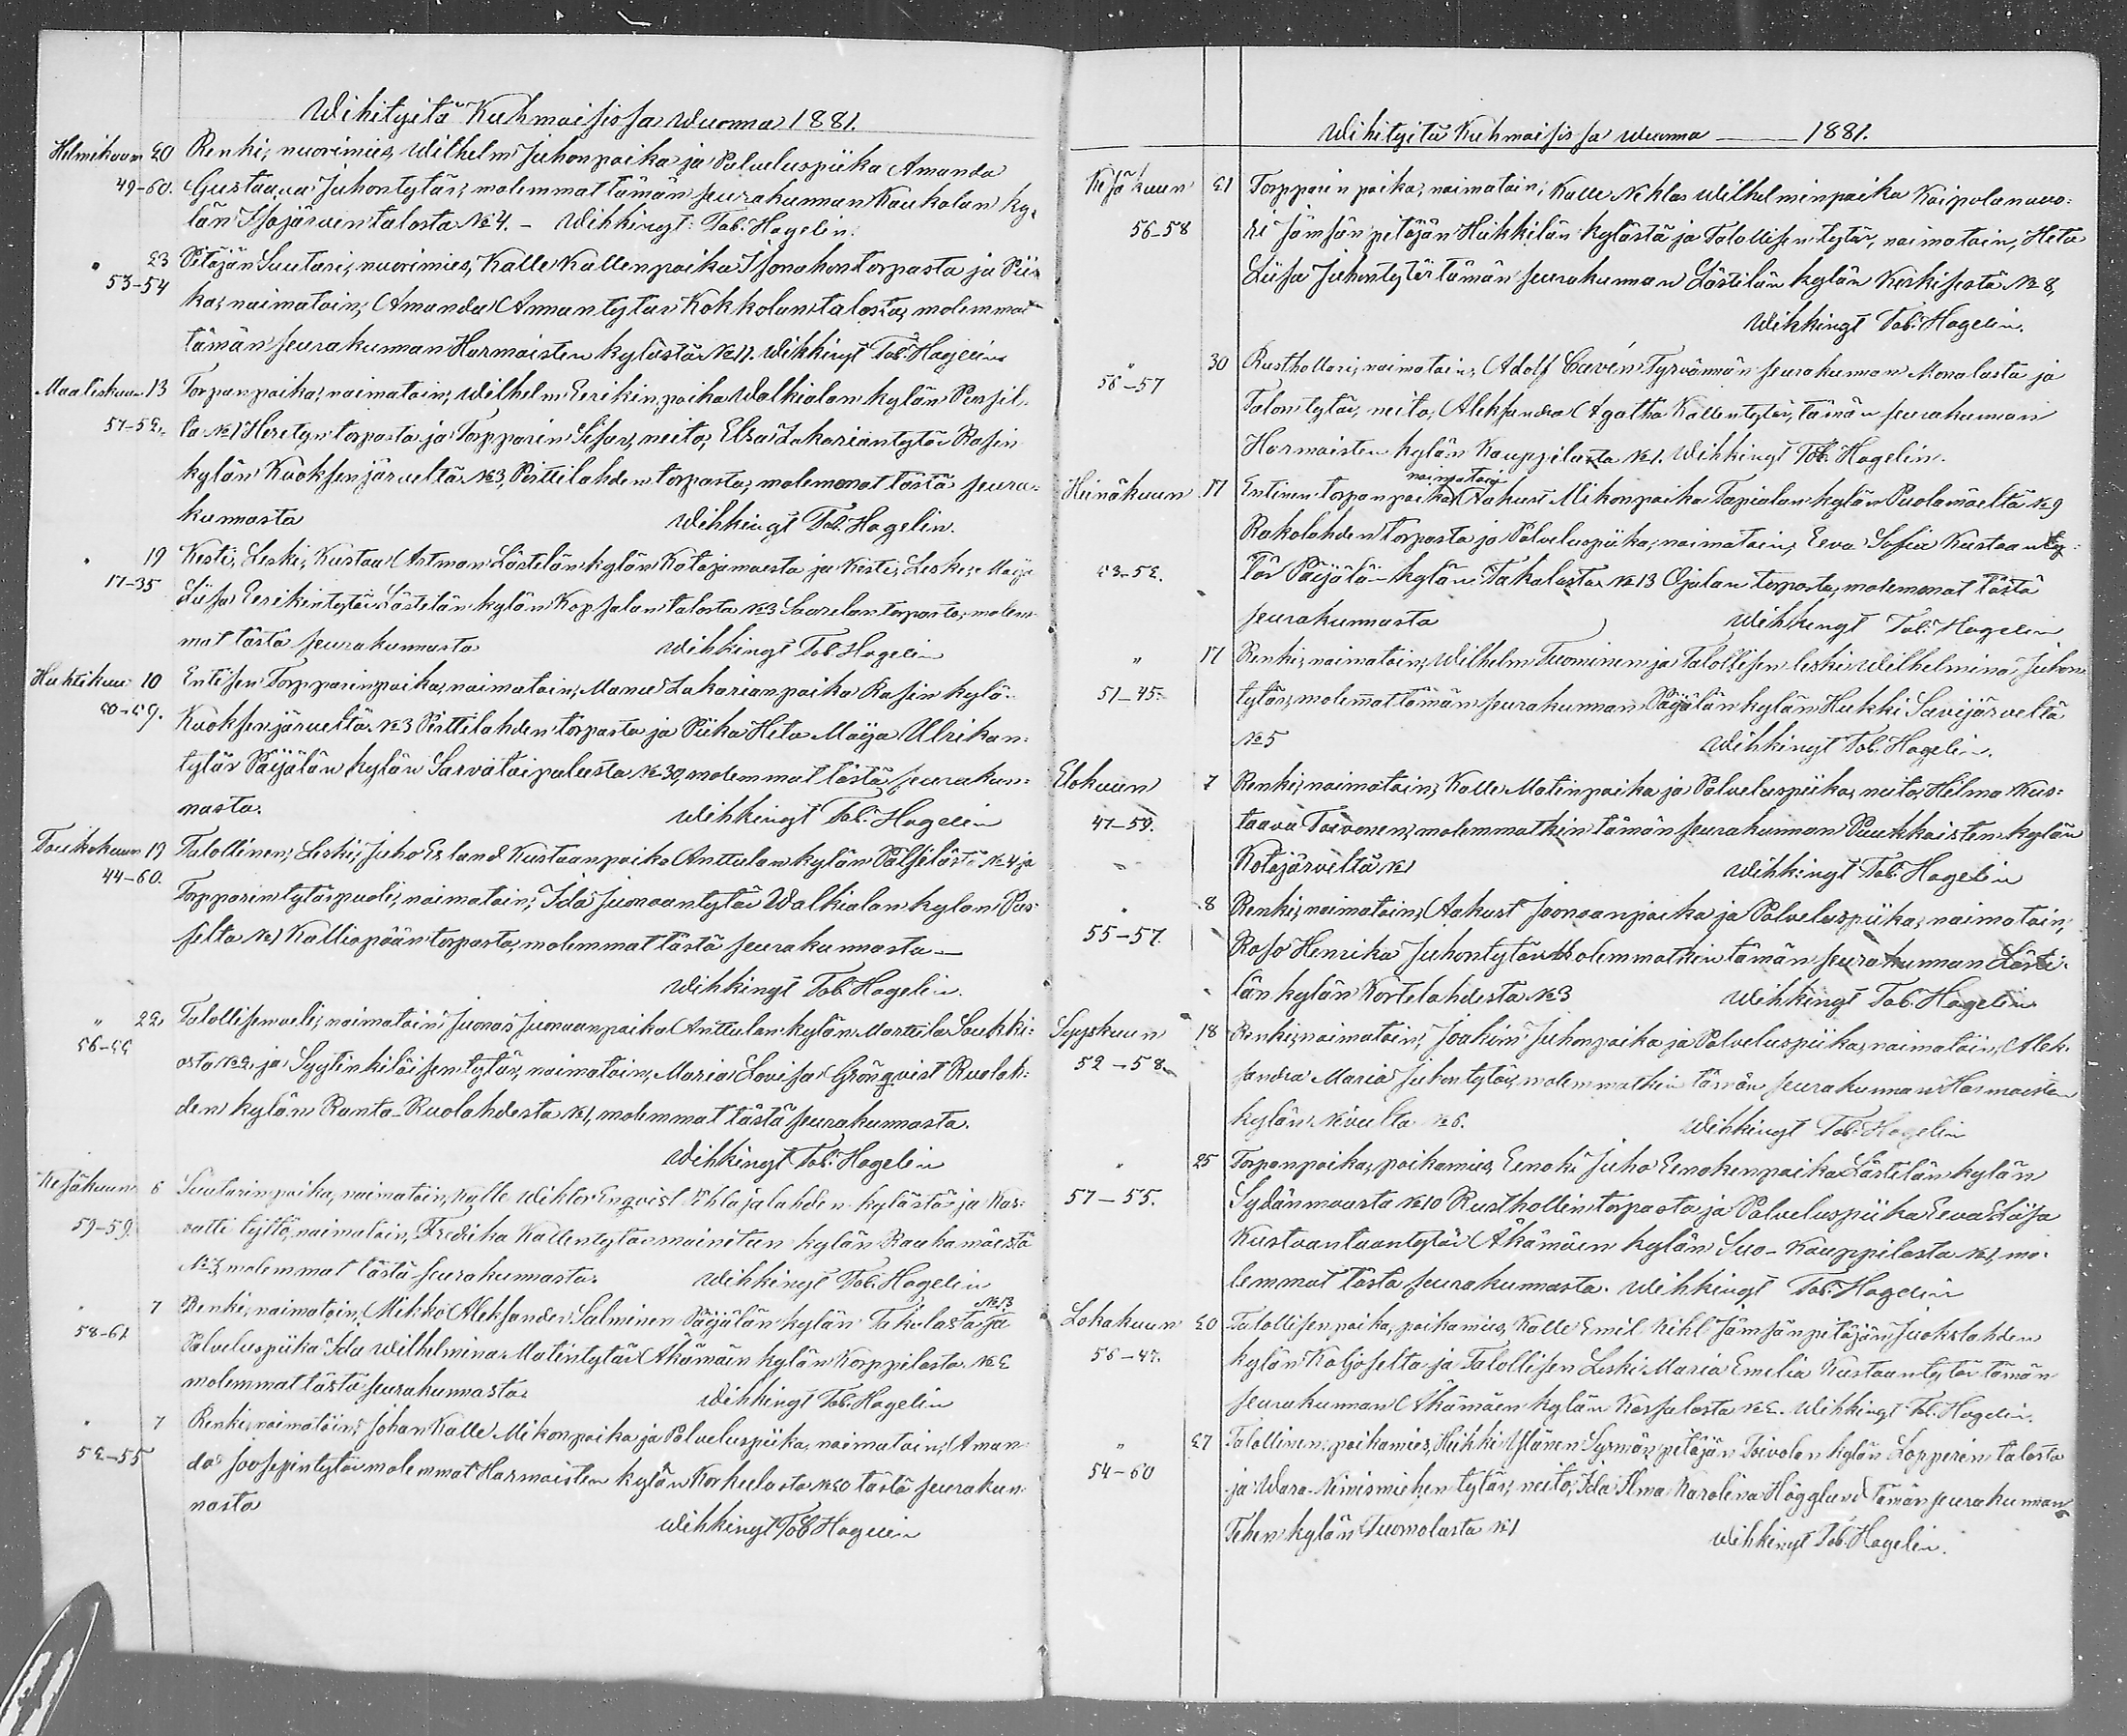 Wihityitä Kuhmoisissa Wuonna 1881.
Helmikuun 20 Renki, nuorimies, Wilhelm Juhonpoika ja Palveluspiika Amanda
49-60. Gustaava Juhontytär, molemmat tämän seurakunnan Kaukolan ky-
län Isojärven talosta №4. - Wihkinyt: Tob. Hagelin.
" 23 Pitäjän Suutari, nuorimies, Kalle Kallenpoika Isonahon torpasta ja Pii-
53-54 ka, naimatoin, Amanda Annantytär Kokkolan talosta, molemmat
tämän seurakunnan Harmoisten kylästä №17. Wihkinyt Tob. Hagelin
Maaliskuun 13 Torpanpoika, naimatoin, Wilhelm Eerikinpoika Walkialan kylän
57-52. №1 torpasta ja Torpparin Sisar, neito, Elsa Zakariantytär Rasin
kylän Kuoksenjärveltä №3, Pirttilahden torpasta, molemmat tästä seura-
kunnasta Wihkinyt Tob. Hagelin.
" 19 Kesti, Leski, Kustaa Artman Lästilän kylän Katajamaesta ja Kesti, Leski, Maija
17-35 Liisa Eerikintytär Lästilän kylän Kopsalan talosta №3 Saarelan torpasta, molem-
mat tästä seurakunnasta Wihkinyt Tob. Hagelin
Huhtikuu 10 Entisen Torpparinpoika, naimatoin, Manu Zakarianpoika Rasin kylä-
20-29. Kuoksenjärveltä №3 Pirttilahden torpasta ja Piika Heta Maija Ulrikan-
tytär Päijälän kylän Sarvataipaleesta №30, molemmat tästä seurakun-
nasta. Wihkinyt Tob. Hagelin
Toukokuun 19 Talollinen, Leski, Juho Erland Kustaanpoika Anttulan kylän Pälsilästä №4 ja
44-60. Torpparin tytärpuoli, naimatoin, Ida Juonaantytär Walkialan kylän
№1 Kalliopään torpasta, molemmat tästä seurakunnasta —
Wihkinyt Tob. Hagelin.
" 22 Talollisenveli, naimatoin Juonas Juonaanpoika Anttulan kylän Marttila Laukki-
56-55 osta №2 ja Syytinkiläisen tytär, naimatoin, Maria Lovisa Grönqvist Ruolah-
den kylän Ranta-Ruolahdesta №1, molemmat tästä seurakunnasta.
Wihkinyt Tob. Hagelin
Kesäkuun 6 Suutarinpoika, naimatoin, Kalle Wiktor Enqvist Pihlajalahden kylästä ja Kas-
59-59. vatti tyttö, naimatoin, Fredrika Kallentytär mainitun kylän Rauhamäestä
№3, molemmat tästä seurakunnasta. Wihkinyt Tob. Hagelin
" 7 Renki, naimatoin, Mikko Aleksander Salminen Päijälän kylän Takalasta №13 ja
58-61 Palveluspiika Ida Wilhelmina Matintytär Äkämäen kylän Korppilasta №2
molemmat tästä seurakunnasta. Wihkinyt Tob. Hagelin
" 7 Renki, naimatoin, Johan Kalle Mikonpoika ja Palveluspiika, naimatoin, Aman-
52-55 da Joosepintytär molemmat Harmoisten kylän Korkeelasta №20 tästä seurakun-
nasta
Wihkinyt Tob. Hagelin
Wihityitä Kuhmoisissa wuonna — 1881.
Kesäkuun 21 Torpparin poika, naimatoin, Kalle Niklas Wilhelminpoika Kaipolanvuo-
56-58 ri Jämsän pitäjän Heikkilän kylästä ja Talollisen tytär, naimatoin, Heta
Liisa Juhontytär tämän seurakunnan Lästilän kylän Keskisestä №8,
Wihkinyt Tob. Hagelin.
" 30 Rusthollari, naimatoin, Adolf Cavén Tyrvännän seurakunnan Monalasta ja
56-57 Talontytär, neito, Aleksandra Agatha Kallentytär, tämän seurakunnan
Harmoisten kylän Kauppilasta №1. Wihkinyt Tob. Hagelin.
naimatoin
Heinäkuun 17 Entinen torpanpoika Aukust Mikonpoika Tapialan kylän Puolamäeltä №9
Rakolahden torpasta ja Palveluspiika, naimatoin, Eeva Sofia Kustaanty-
43-52. tär Päijälän kylän Takalasta №13 Ojalan torpasta, molemmat tästä
seurakunnasta Wihkinyt Tob. Hagelin
" 17 Renki, naimatoin, Wilhelm Tuominen ja Talollisen leski Wilhelmina Juhon-
51-45. tytär, molemmat tämän seurakunnan Päijälän kylän Hukki Savijärveltä
№5 Wihkinyt Tob. Hagelin.
Elokuun 7 Renki, naimatoin, Kalle Matinpoika ja Palveluspiika, neito, Hilma Kus-
47-59. taava Toivonen, molemmatkin tämän seurakunnan Puukkoisten kylän
Kotajärveltä №1 Wihkinyt Tob. Hagelin
" 8 Renki, naimatoin, Aukust Joonaanpoika ja Palveluspiika, naimatoin,
55-57. Rosa Henrika Juhontytär Molemmatkin tämän seurakunnan Lästi-
län kylän Kortelahdesta №3 Wihkinyt Tob. Hagelin
Syyskuun 18 Renki, naimatoin, Joakim Juhonpoika ja Palveluspiika, naimatoin, Alek-
52-58. sandra Maria Juhontytär, molemmatkin tämän seurakunnan Harmoisten
kylän №6. Wihkinyt Tob. Hagelin
" 25 Torpanpoika, poikamies, Eenokki Juho Eenokinpoika Lästilän kylän
57-55. Sydänmaasta №10 Rusthollin torpasta ja Palveluspiika Eeva Liisa
Kustaantaantytär Äkämäen kylän Suo-Kauppilasta №1, mo-
lemmat tästä seurakunnasta. Wihkinyt Tob. Hagelin
Lokakuun 20 Talollisen poika, poikamies, Kalle Emil Kihl Jämsän pitäjän, Juokslahden
56-47. kylän Kaljoselta ja Talollisen Leski Maria Emelia Kustaantytär tämän
seurakunnan Äkämäen kylän Kassalasta №2. Wihkinyt Tob. Hagelin.
" 27 Talollinen, poikamies, Heikki Yijänen Sysmän pitäjän Toivolan kylän Lopperin talosta
54-60 ja Wara-Nimismiehen tytär, neito, Ida Alma Karolina Högglund tämän seurakunnan
Tehen kylän Tuomolasta №1 Wihkinyt Tob. Hagelin.